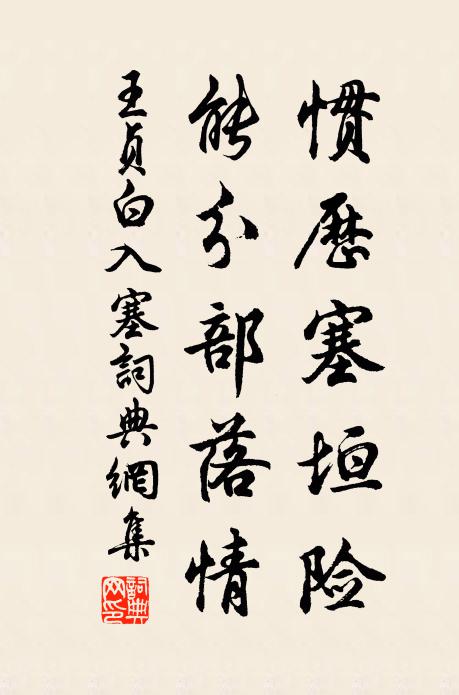 惯歷塞垣险
能分部落情
王贞白入塞詞典網集
詞典网印